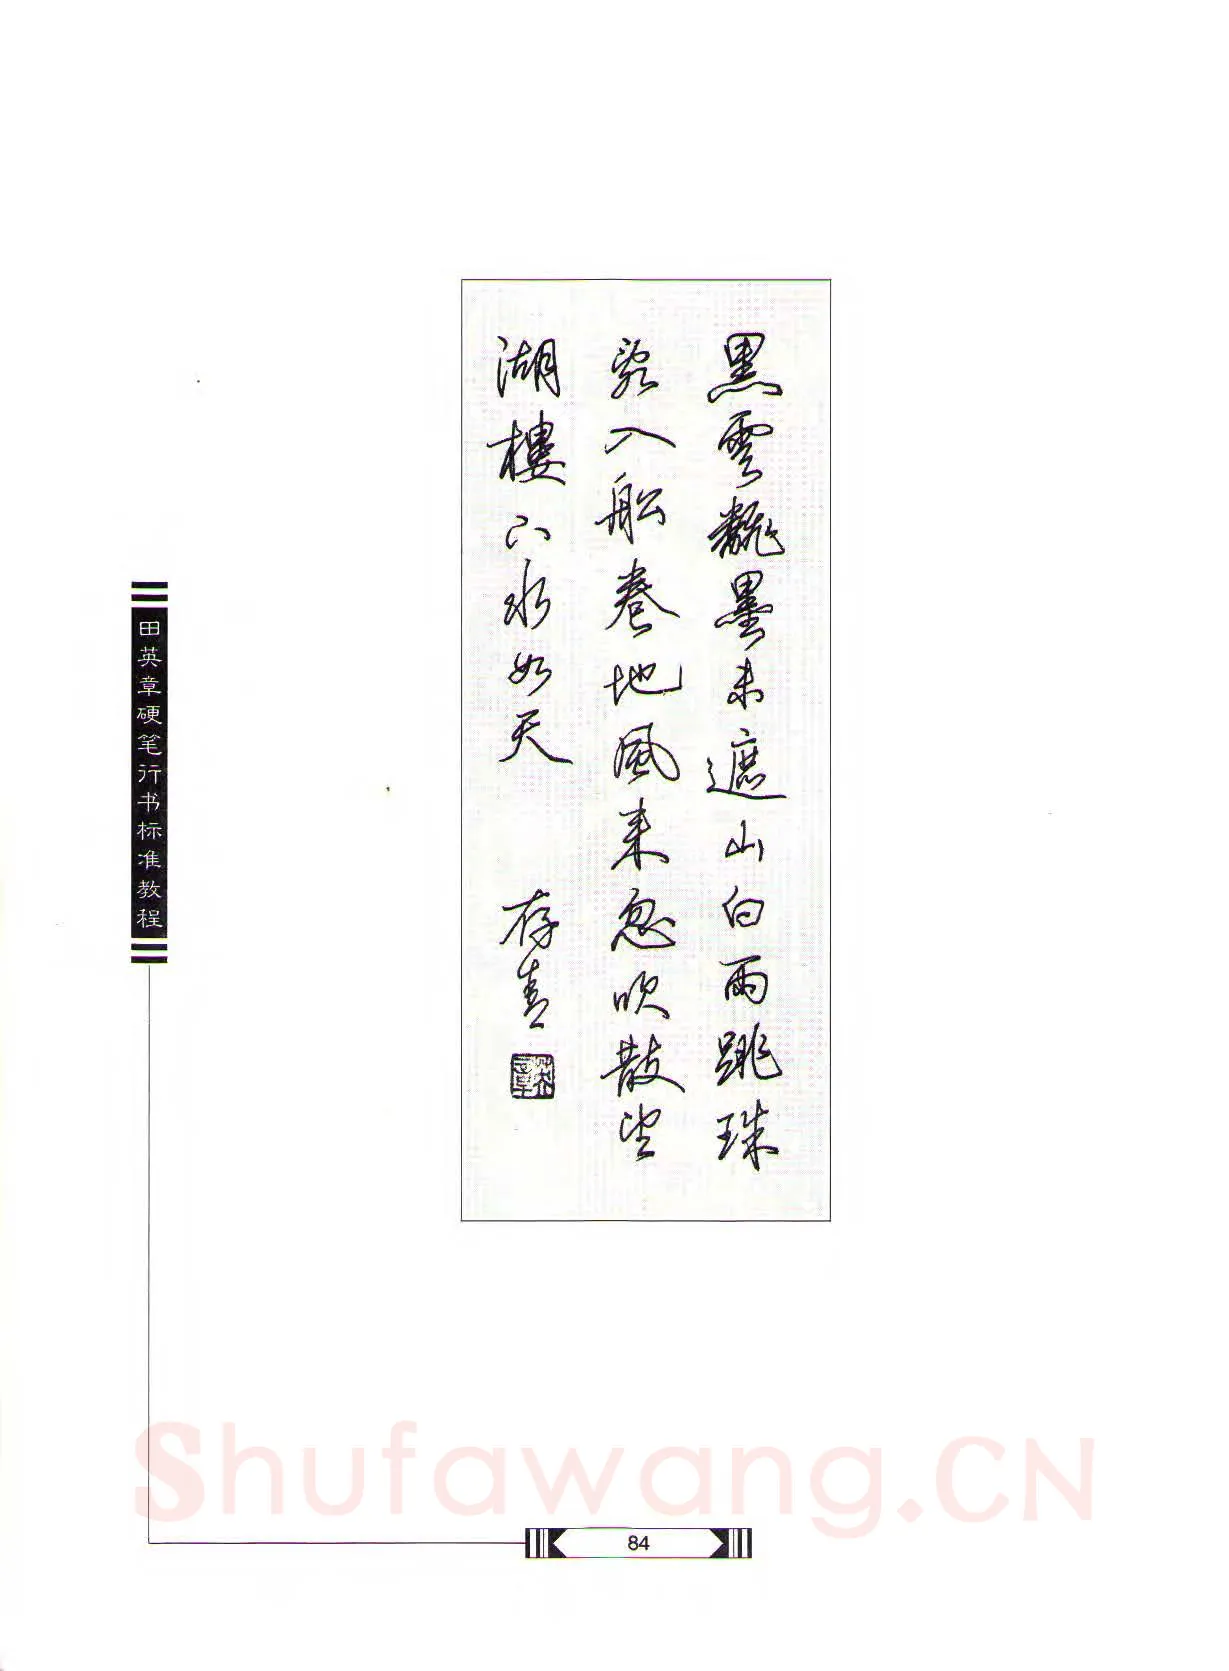 黑雲翻墨未遮山白雨跳珠
亂入船卷地風来忽吹散望
湖樓下水如天
存青
田英章硬笔行书标准教程
Shufawang.CN
84